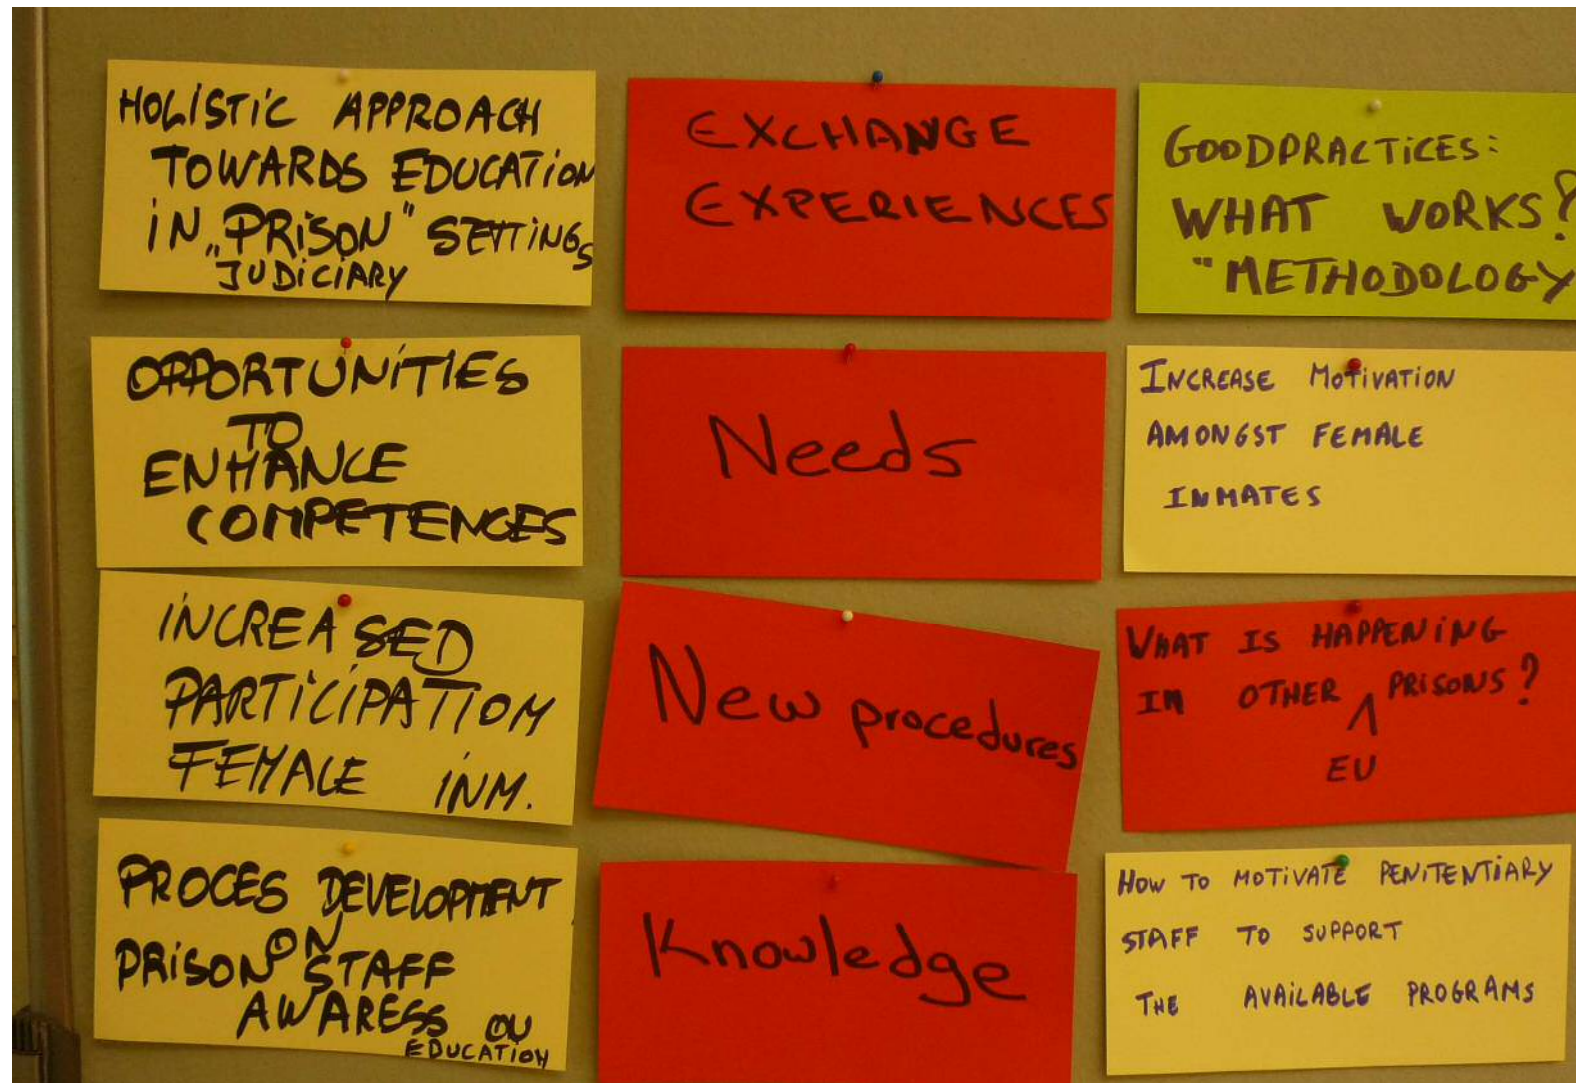 HOLISTIC APPROACH
TOWARDS EDUCATION
IN „PRISON" SETTINGS
JUDICIARY
OPPORTUNITIES
TO
ENHANCE
COMPETENCES
INCREASED
PARTICIPATION
FEMALE INM.
PROCES DEVELOPMENT
ON
PRISON STAFF
AWARESS ON
EDUCATION
EXCHANGE
EXPERIENCES
Needs
New procedures
Knowledge
GOODPRACTICES:
WHAT WORKS?
"METHODOLOGY
INCREASE MOTIVATION
AMONGST FEMALE
INMATES
WHAT IS HAPPENING
IN OTHER PRISONS?
EU
HOW TO MOTIVATE PENITENTIARY
STAFF TO SUPPORT
THE AVAILABLE PROGRAMS